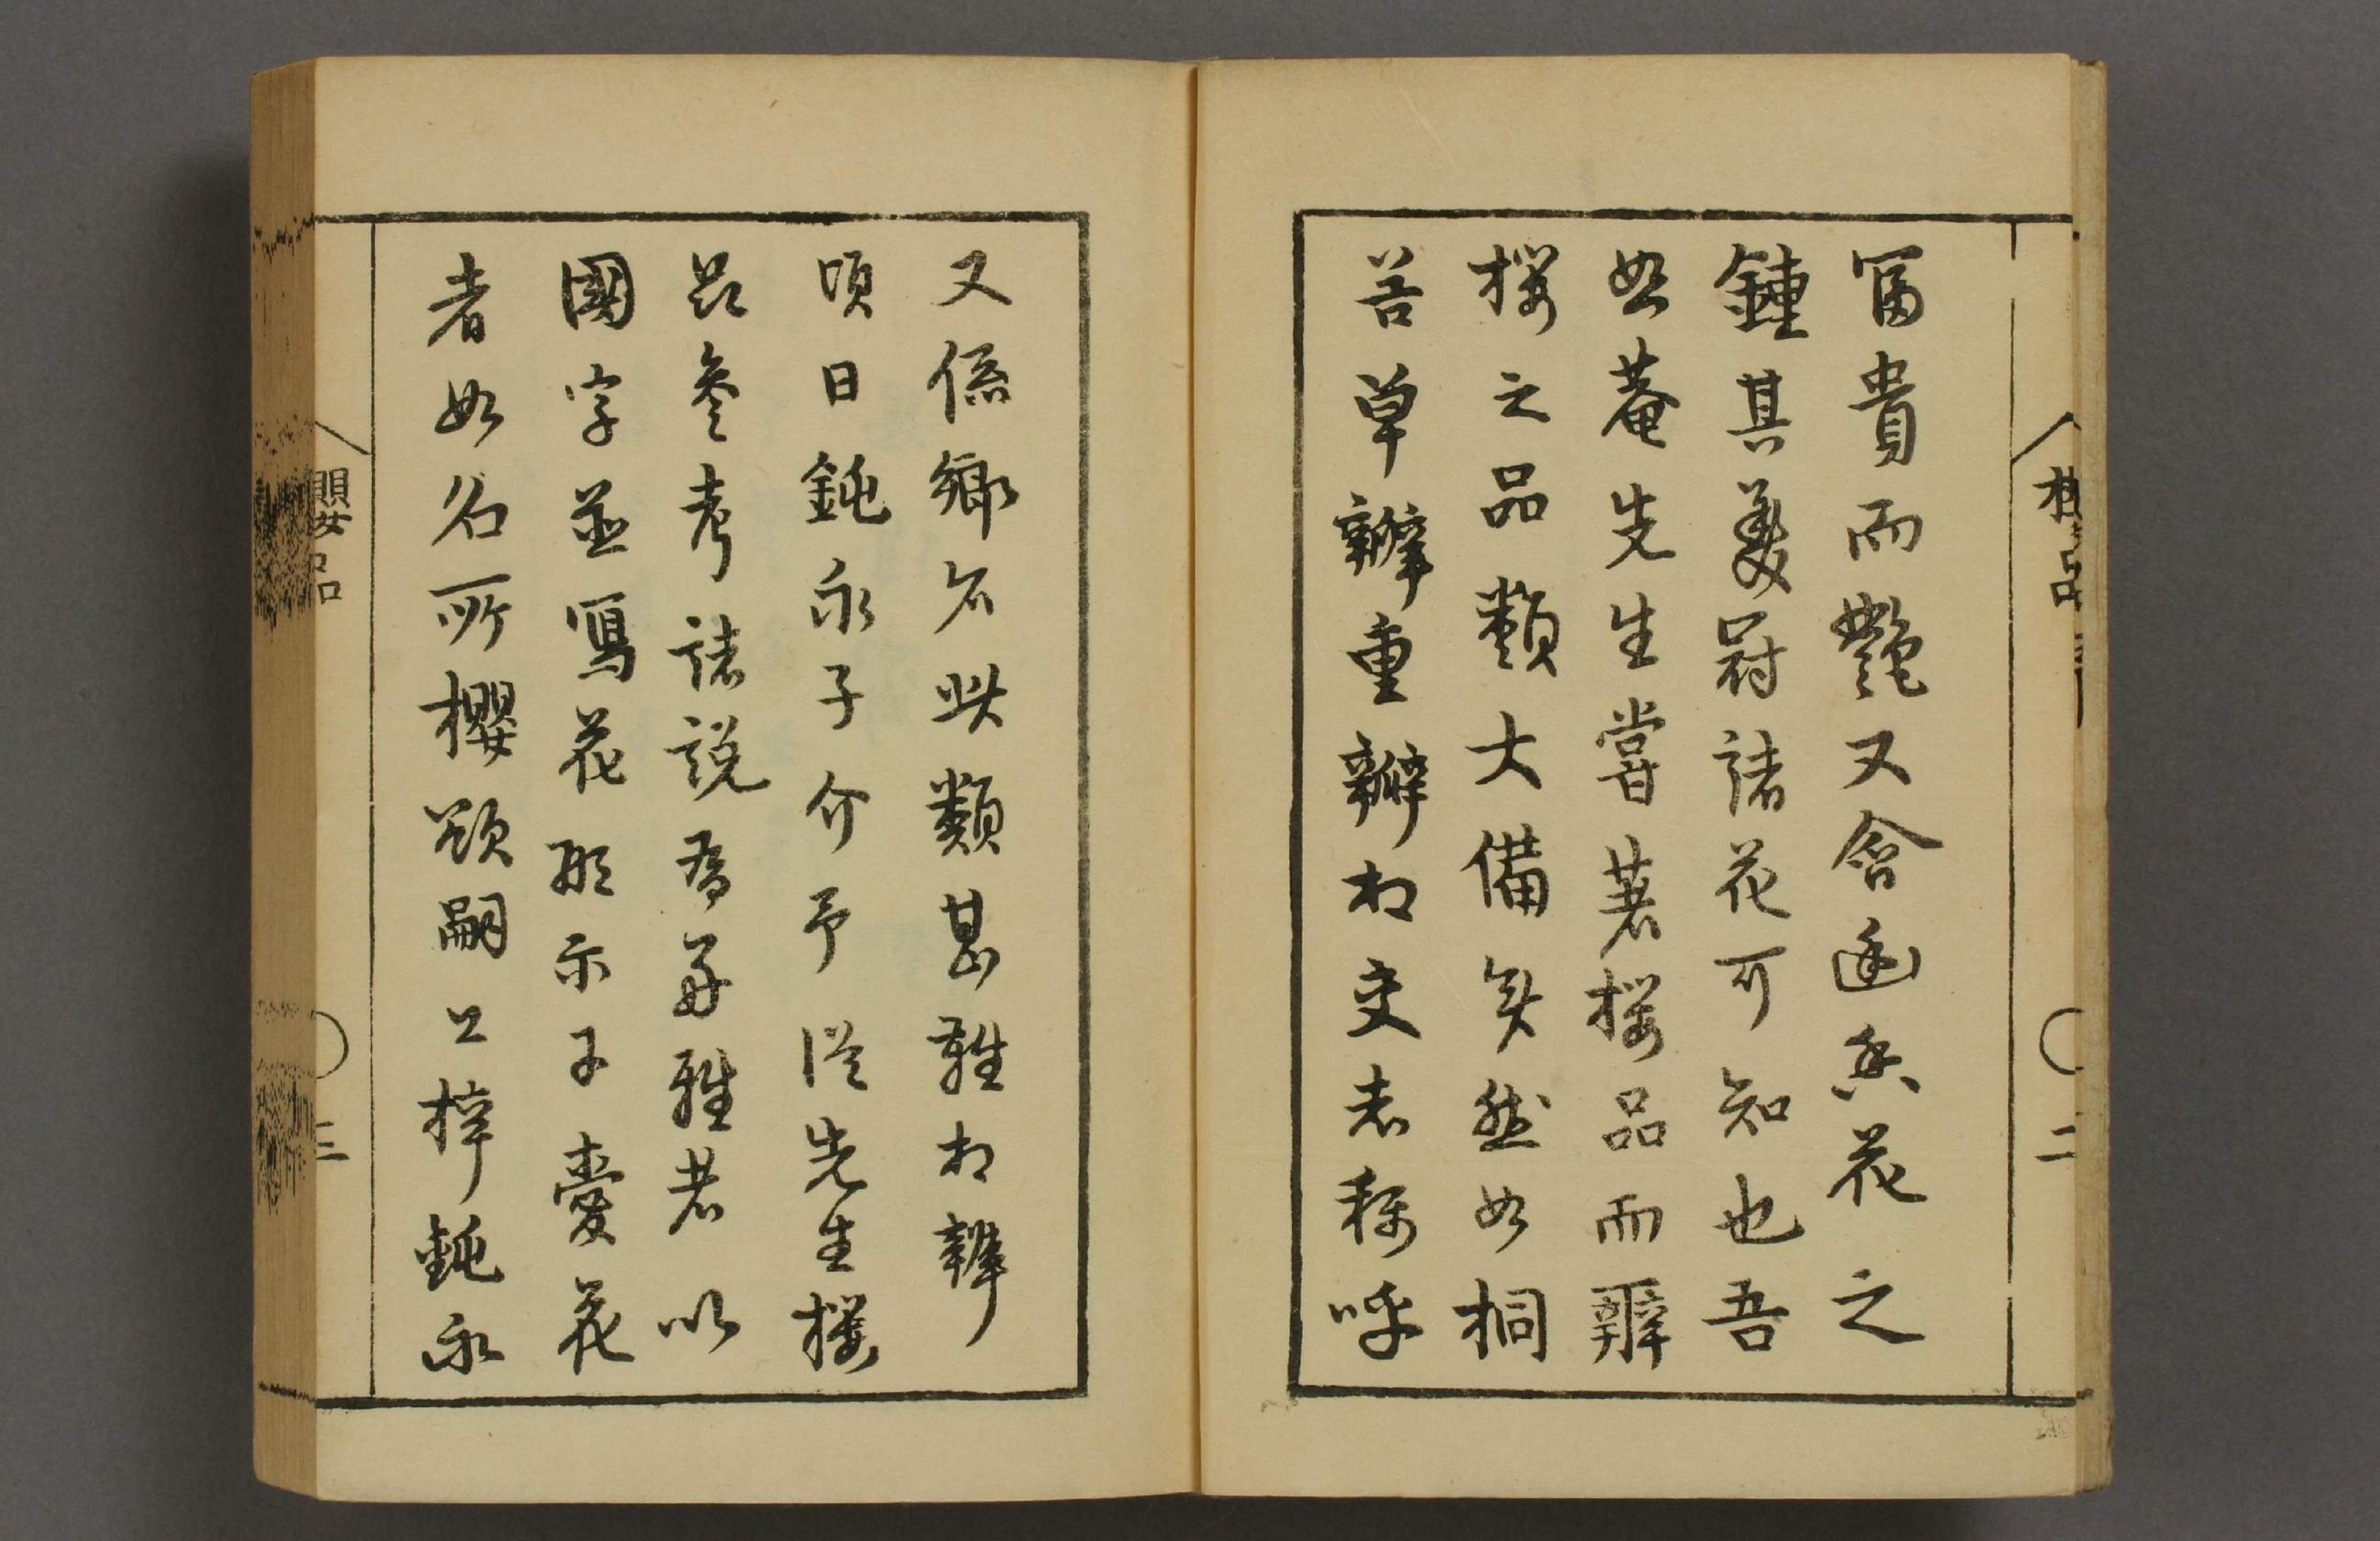 富貴而艷又含幽香花之
鍾其美冠諸花可知也吾
怡菴先生嘗著櫻品而辭
櫻之品類大備矣然如桐
若單瓣重瓣相交者稱呼
又係鄉名此類甚雜相辨
頃日鈍永子介予從先生櫻
品參考諸說為好雅者以
國字並寫花形示于愛花
者如名所櫻欲嗣上梓鈍永
櫻品
二
櫻品
三